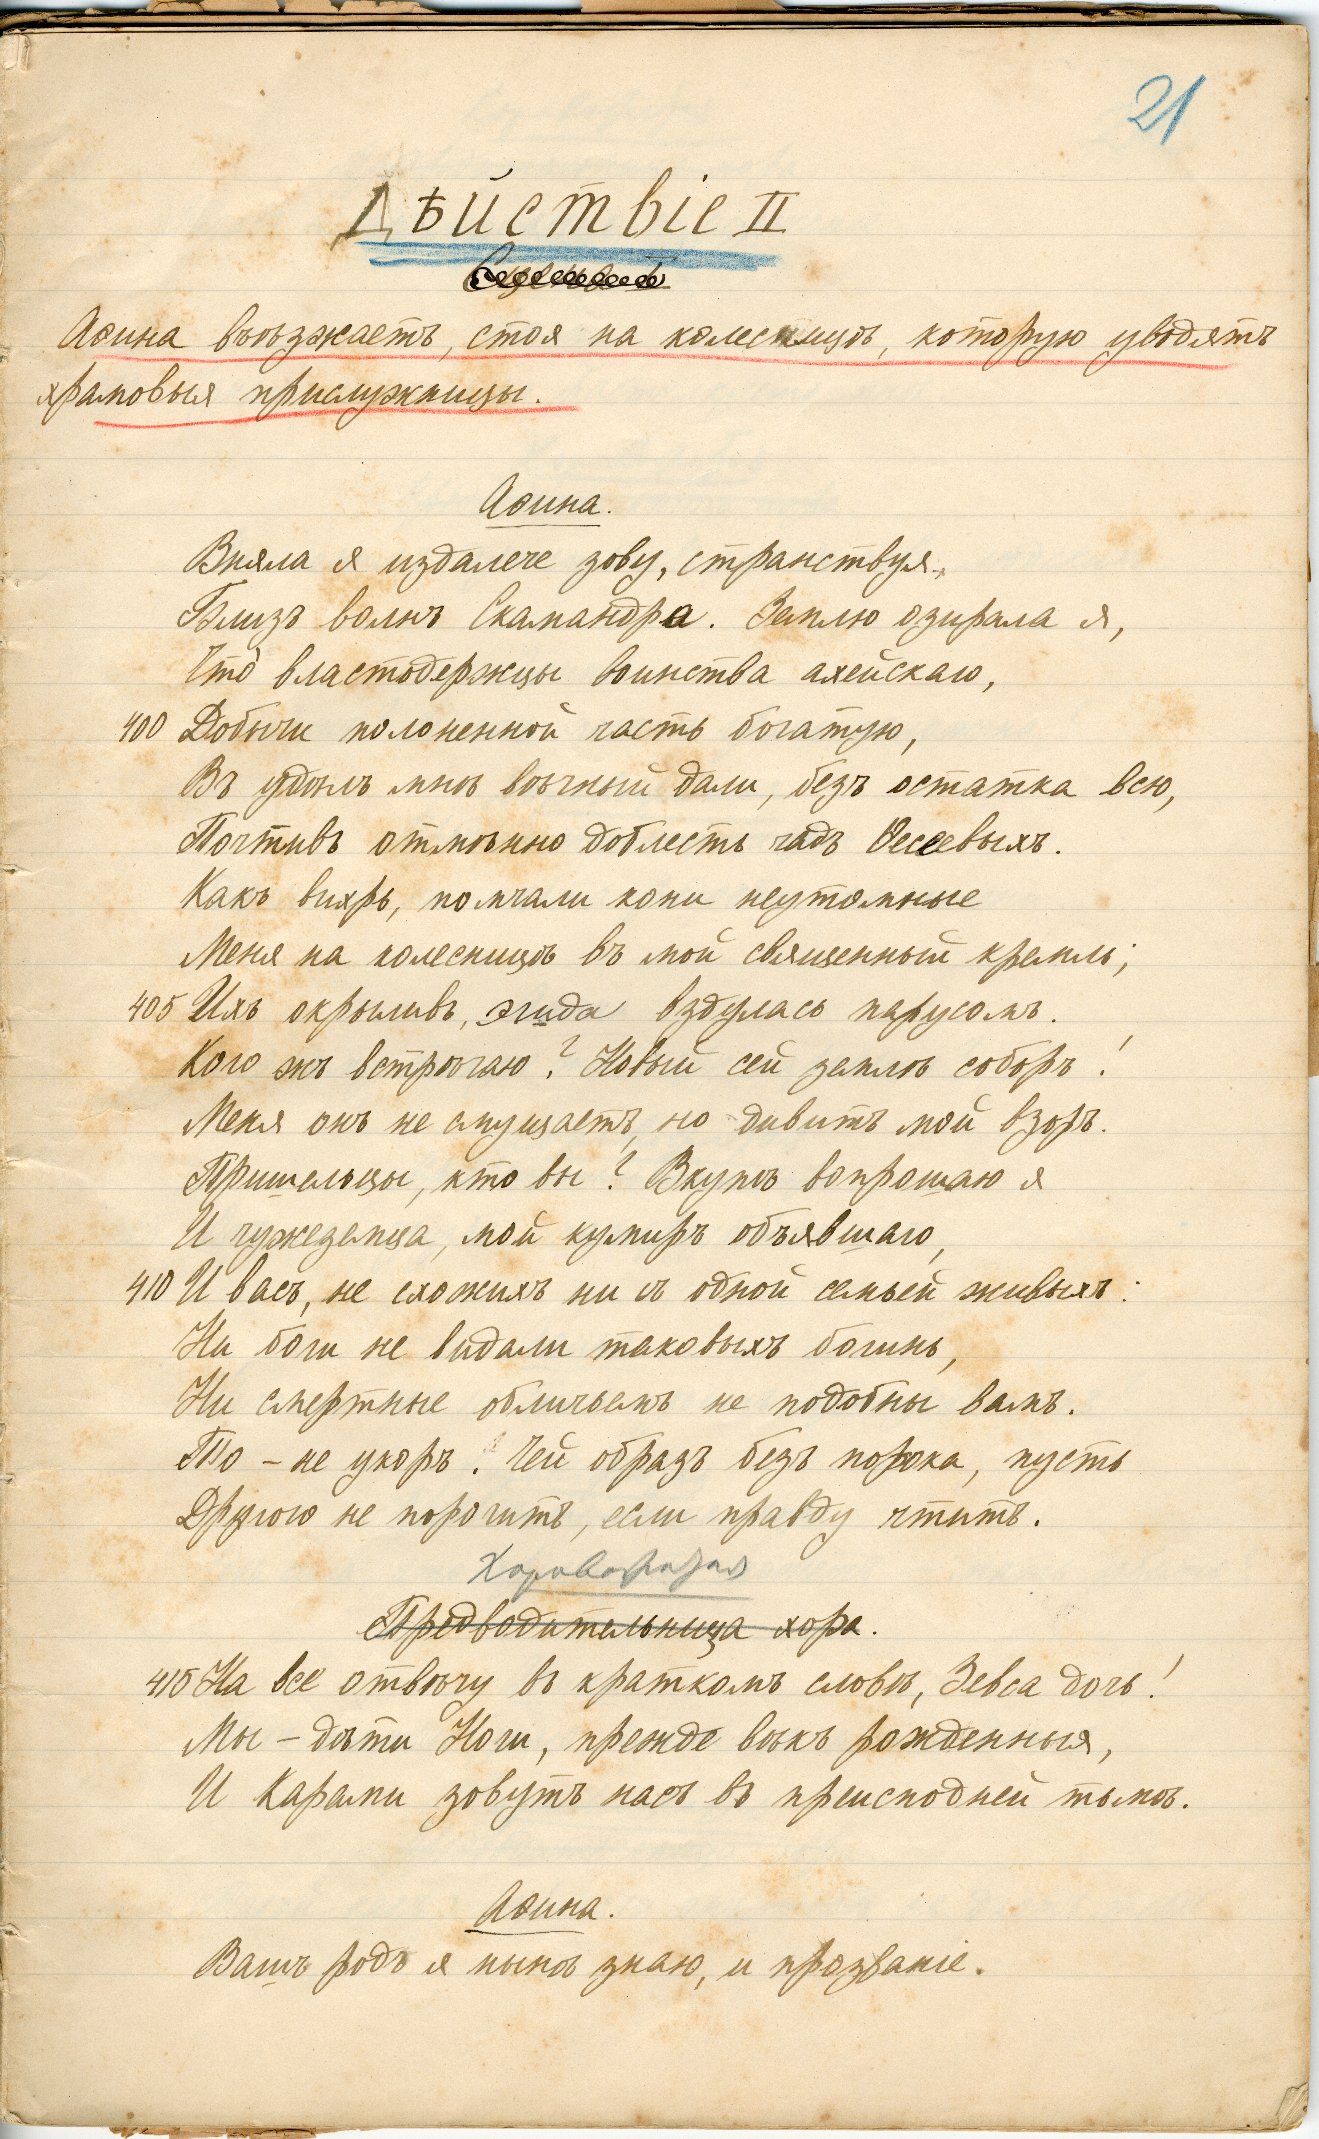 21
Дѣйствіе II
Аѳина въѣзжаетъ, стоя на колесницѣ, которую уводятъ
храмовыя прислужницы.
Аѳина.
Вняла я издалече зову, странствуя
Близъ волнъ Скамандра. Землю озирала я,
Что властодержцы воинства ахейскаго,
400 Добычи полоненной часть богатую,
Въ удѣлъ мнѣ вѣчный дали, безъ остатка всю,
Почтивъ отмѣнно доблесть чадъ Ѳесеевыхъ.
Какъ вихрь, помчали кони неутомные
Меня на колесницѣ въ мой священный кремль;
405 Ихъ окрыливъ, эгида вздулась парусомъ.
Кого жъ встрѣчаю? Новый сей землѣ соборъ!
Меня онъ не смущаетъ, но дивитъ мой взоръ.
Пришельцы, кто вы? Вкупѣ вопрошаю я
И чужеземца, мой кумиръ объявшаго,
410 И васъ, не схожихъ ни съ одной семьей живыхъ:
Ни боги не видали таковыхъ богинь,
Ни смертные обличьемъ не подобны вамъ.
То – не укоръ. Чей образъ безъ порока, пусть
Другого не порочитъ, если правду чтитъ.
Предводительница хора.
415 На все отвѣчу въ краткомъ словѣ, Зевса дочь!
Мы – дѣти Ночи, прежде вѣкъ рожденныя,
И Карами зовутъ насъ въ преисподней тьмѣ.
Аѳина.
Вашъ родъ я нынѣ знаю, и прозваніе.